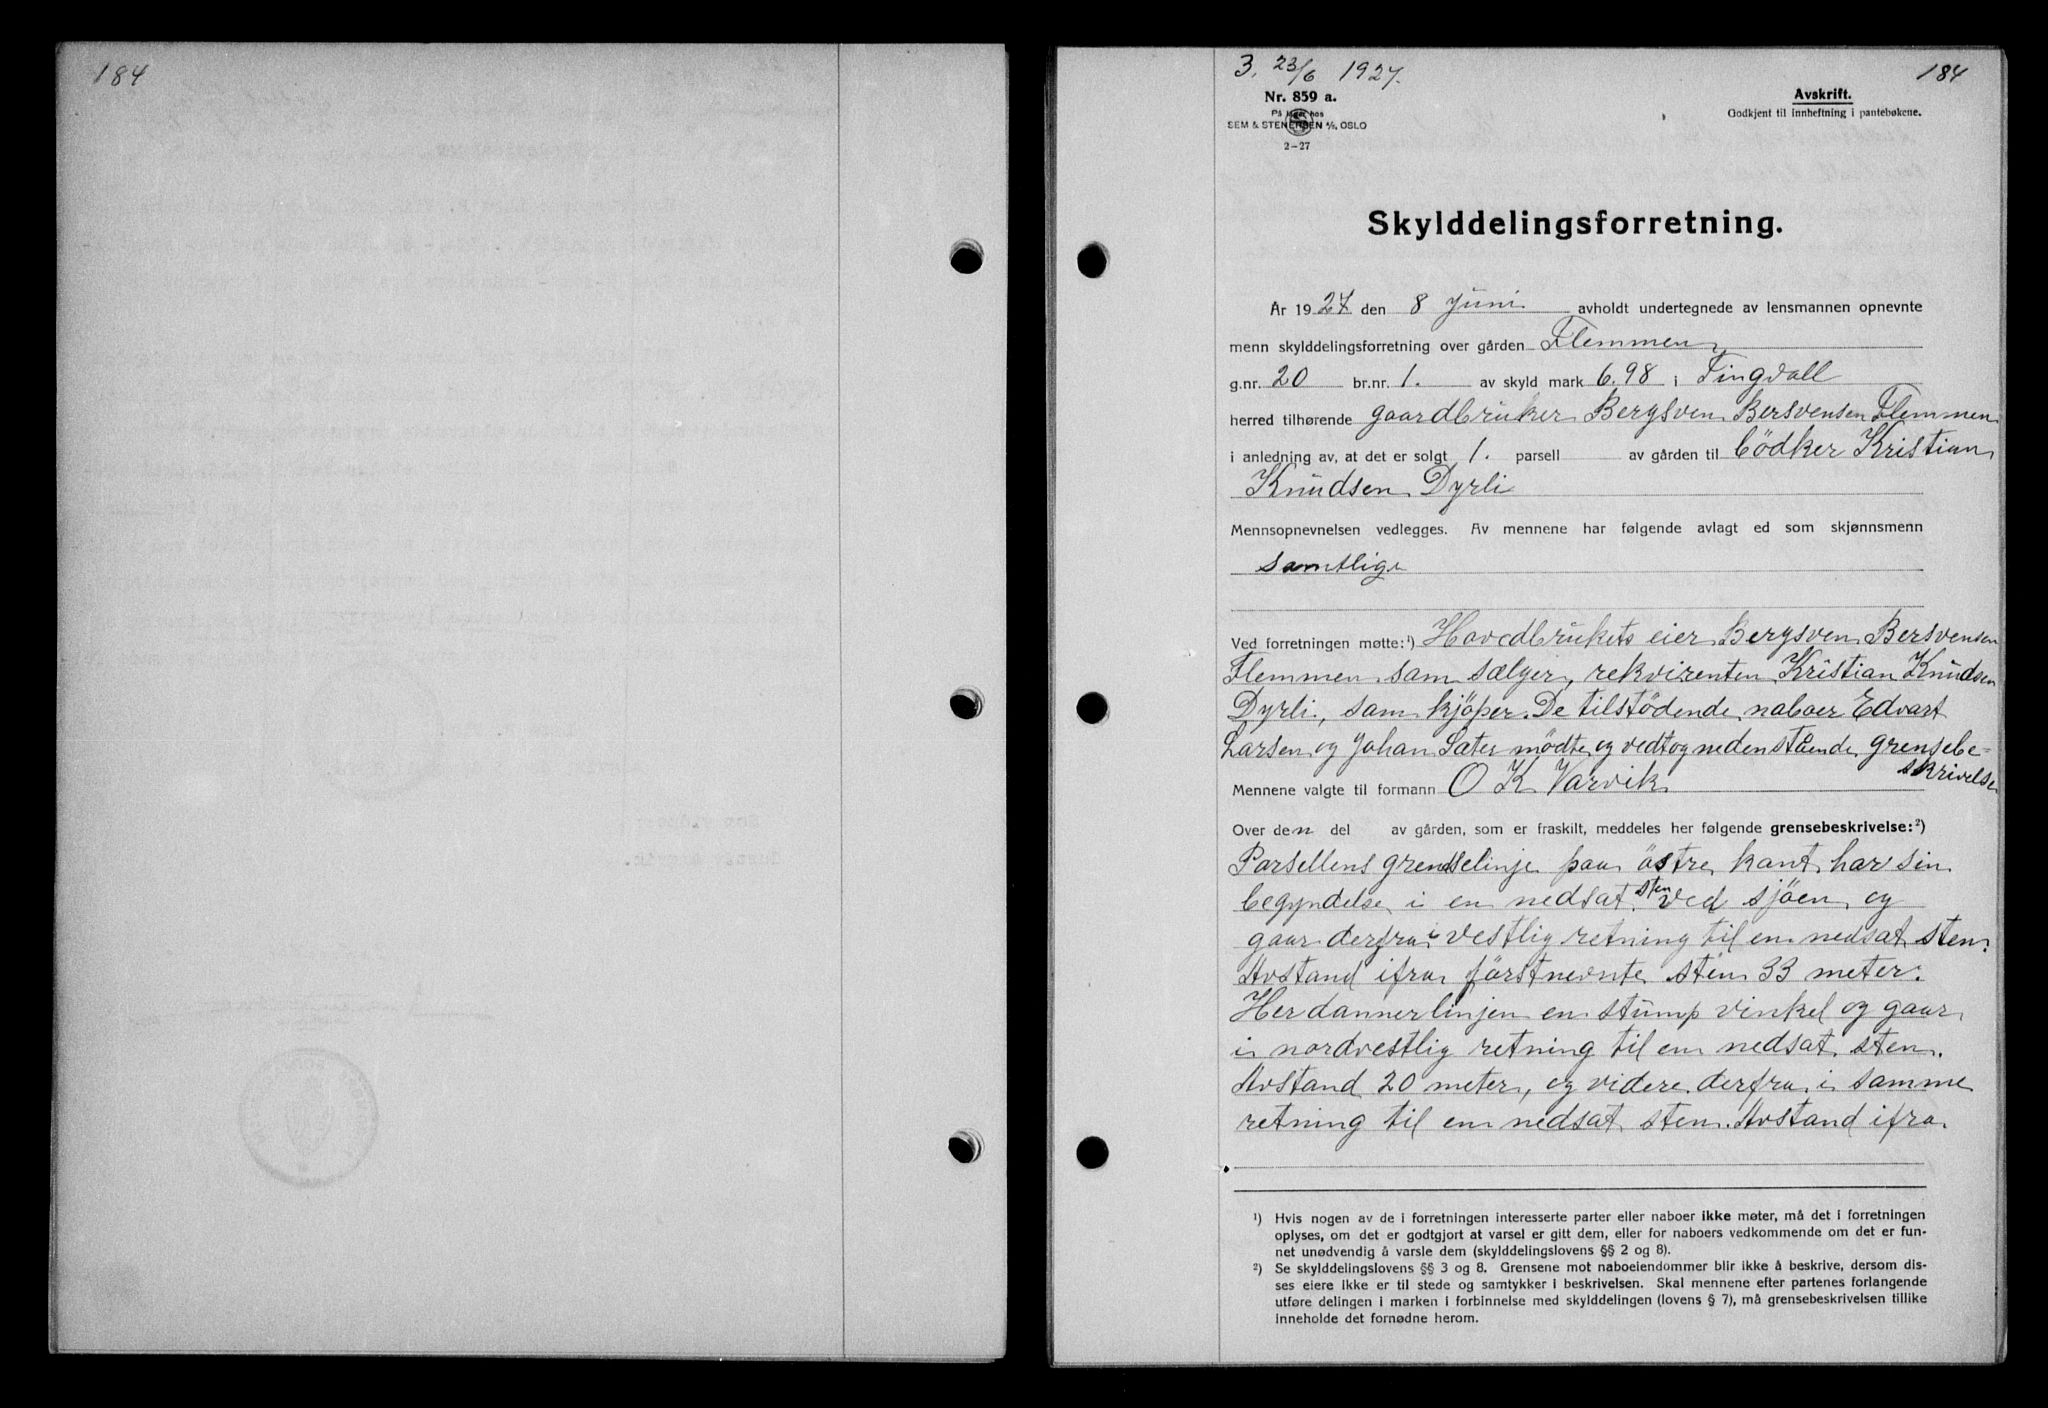 184
3. 23/6 1927.
184
Nr. 859 a.
På lager hos
SEM & STENERSEN A/S, OSLO
2-27
Avskrift.
Godkjent til innheftning i pantebøkene.
Skylddelingsforretning.
År 1927 den 8 juni avholdt undertegnede av lensmannen opnevnte
menn skylddelingsforretning over gården Flemmen
g.nr. 20 br.nr. 1. av skyld mark 6.98 i Tingvoll
herred tilhørende gaardbruker Bergsven Bersvensen Flemmen
i anledning av, at det er solgt 1. parsell av gården til bödker Kristian
Knudsen Dyrli
Mennsopnevnelsen vedlegges. Av mennene har følgende avlagt ed som skjønnsmenn
samtlige
Ved forretningen møtte:¹) Hovedbrukets eier Bergsven Bersvensen
Flemmen som sælger, rekvirenten Kristian Knudsen
Dyrli, som kjöper. De tilstödende naboer Edvart
Larsen og Johan Sæter mödte og vedtog nedenstående grensebe-
skrivelse
Mennene valgte til formann O K Varvik
Over den del av gården, som er fraskilt, meddeles her følgende grensebeskrivelse:²)
Parsellens grenselinje paa östre kant har sin
begyndelse i en nedsat sten ved sjöen og
gaar derfra i vestlig retning til en nedsat sten.
Avstand ifra förstnevnte sten 33 meter.
Her danner linjen en stump vinkel og gaar
i nordvestlig retning til en nedsat sten.
Avstand 20 meter, og videre derfra i samme
retning til en nedsat sten. Avstand ifra
¹) Hvis nogen av de i forretningen interesserte parter eller naboer ikke møter, må det i forretningen
oplyses, om det er godtgjort at varsel er gitt dem, eller for naboers vedkommende om det er fun-
net unødvendig å varsle dem (skylddelingslovens §§ 2 og 8).
²) Se skylddelingslovens §§ 3 og 8. Grensene mot naboeiendommer blir ikke å beskrive, dersom dis-
ses eiere ikke er til stede og samtykker i beskrivelsen. Skal mennene efter partenes forlangende
utføre delingen i marken i forbinnelse med skylddelingen (lovens § 7), må grensebeskrivelsen tillike
inneholde det fornødne herom.